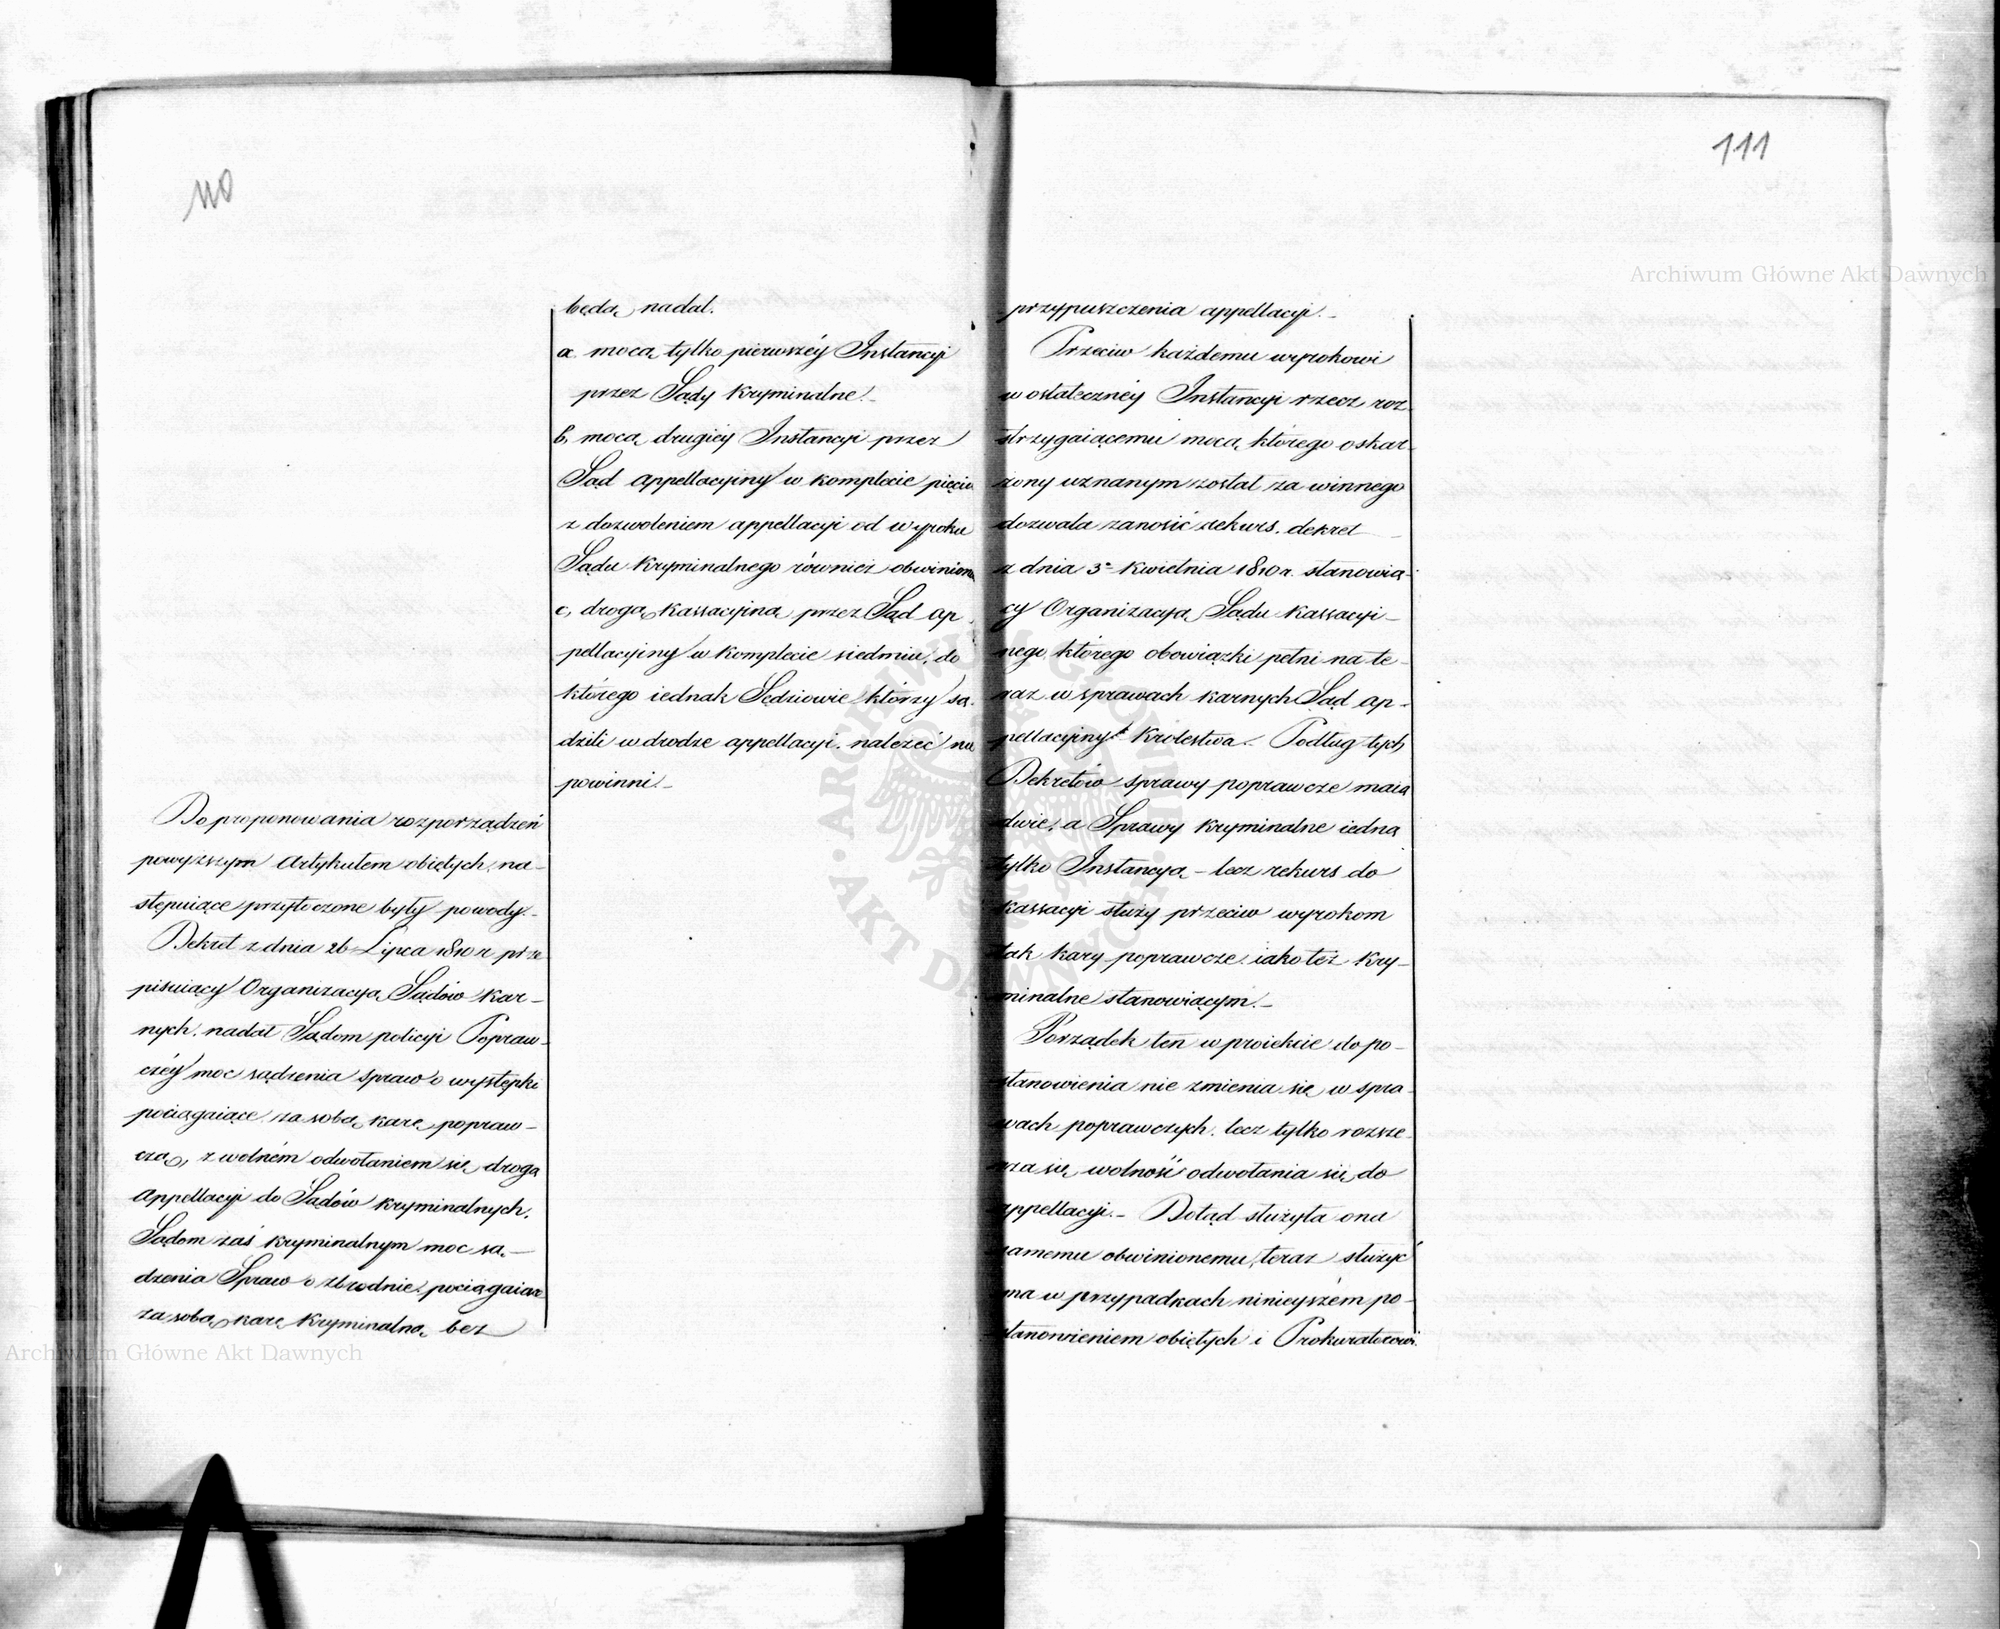 110
będą nadal.
a. mocą tylko pierwszéy Instancyi
przez Sądy Kryminalne.–
b. mocą drugiéy Instancyi przez
Sąd Appellacyiny w komplecie pięciu
z dozwoleniem appellacyi od wyroku
Sądu Kryminalnego również obwinione
c, drogą Kassacyiną przez Sąd Ap-
pellacyiny w Komplecie siedmiu, do
którego iednak Sędziowie którzy są-
dzili w drodze appellacyi. należeć nie
powinni.–
Do proponowania rozporządzeń
powyższym Artykułem obiętych, na-
stępuiące przytoczone były powody.–
Dekret z dnia 26 Lipca 1810 r prze
pisuiący Organizacyą Sądów Kar-
nych. nadał Sądom policyi Popraw-
czéy moc sądzenia spraw o występki
pociągaiące za sobą karę popraw-
czą, z wolném odwołaniem się drogą
Appellacyi do Sądów Kryminalnych.
Sądom zaś Kryminalnym moc są-
dzenia Spraw o zbrodnie pociągaiące
za sobą karę Kryminalną bez
111
przypuszczenia appellacyi.–
Przeciw każdemu wyrokowi
w ostatecznéy Instancyi rzecz roz-
strzygaiącemu mocą którego oskar-
żony uznanym został za winnego
dozwala zanosić rekurs. dekret
z dnia 3º Kwietnia 1810 r. stanowią-
cy Organizacyą Sądu Kassacyi-
nego, którego obowiązki pełni na te-
raz w sprawach karnych Sąd Ap-
pellacyiny Królestwa.– Podług tych
Dekretów sprawy poprawcze maią
dwie, a Sprawy Kryminalne iedną
tylko Instancyą – lecz rekurs do
Kassacyi służy przeciw wyrokom
tak kary poprawcze iako też Kry-
minalne stanowiącym.–
Porządek ten w proiekcie do po-
stanowienia nie zmienia się w spra-
wach poprawczych. lecz tylko rozsze-
rza się wolność odwołania się do
appellacyi.– Dotąd służyła ona
samemu obwinionemu, teraz służyć
ma w przypadkach ninieyszém po-
stanowieniem obiętych i Prokuratorowi.
Archiwum Główne Akt Dawnych
Archiwum Główne Akt Dawnych
ARCHIWUM GŁÓWNE AKT DAWNYCH